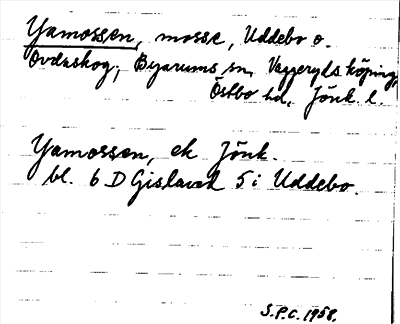 Yamossen, mosse, Uddebo o.
Ovdaskog, Byarums sn, Vaggeryds köping,
Östbo hd, Jönk. l.
Yamossen, ek Jönk.
bl. 6 D Gislaved 5 i Uddebo.
S.P.C. 1958.